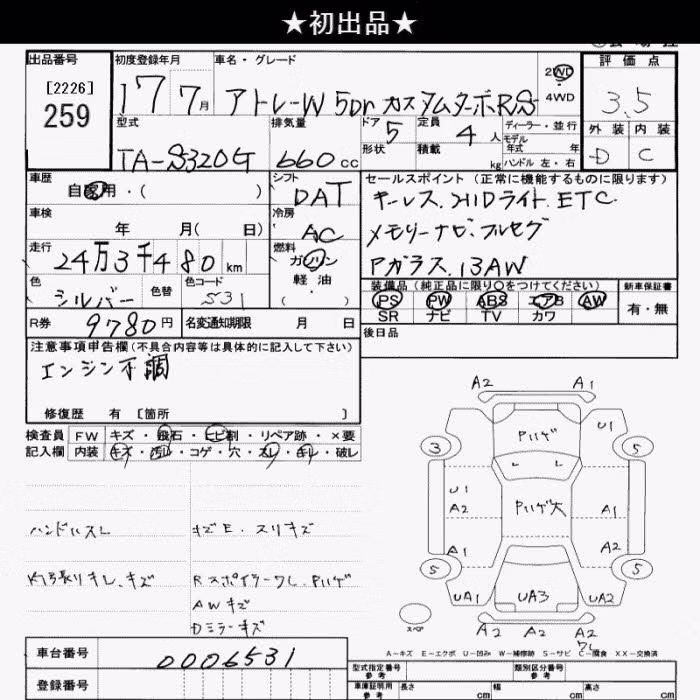 ★初出品★
出品番号
[2226]
259
初度登録年月
17 7月
車名・グレード
アトレーW 5Dr カスタムターボRS
2WD
4WD
評価点
3.5
外装 内装
D C
型式
TA-S320G
排気量
660cc
ドア 5
形状
定員 4人
積載 kg
ディーラー・並行
モデル
年式 年
ハンドル 左・右
車歴
自家用・( )
シフト
DAT
車検
年 月( 日)
冷房
AC
走行
24万3千480km
燃料
ガソリン
軽油
( )
色
シルバー
色替
色コード
531
R券 9780円
名変通知期限 月 日
セールスポイント (正常に機能するものに限ります)
キーレス.HIDライト.ETC
メモリーナビ.フルセグ
Pガラス.13AW
装備品 (純正品に限り○をつけてください)
PS PW ABS エアB AW
SR ナビ TV カワ
新車保証書
有・無
後日品
注意事項申告欄(不具合内容等は具体的に記入して下さい)
エンジン不調
修復歴 有 [箇所 ]
検査員
記入欄
FW キズ・飛石・ヒビ割・リペア跡・×要
内装 キズ・汚レ・コゲ・穴・スレ・キレ・破レ
ハンドルスレ
キズE.スリキズ
内張りキレ.キズ
RスポイラーワレPハゲ
AWキズ
Dミラーキズ
A2 A1
Pハゲ
U1
3 5
U1
A2
Pハゲ大
A1
A1
A2
5 5
UA1 UA3 UA2
スペア
A2 A2 A2
ワレ
A-キズ E-エクボ U-凹み W-補修跡 S-サビ C-腐食 XX-交換済
車台番号
0006531
登録番号
型式指定番号
参考
類別区分番号
参考
車庫証明用
参考
長さ cm
幅 cm
高さ cm